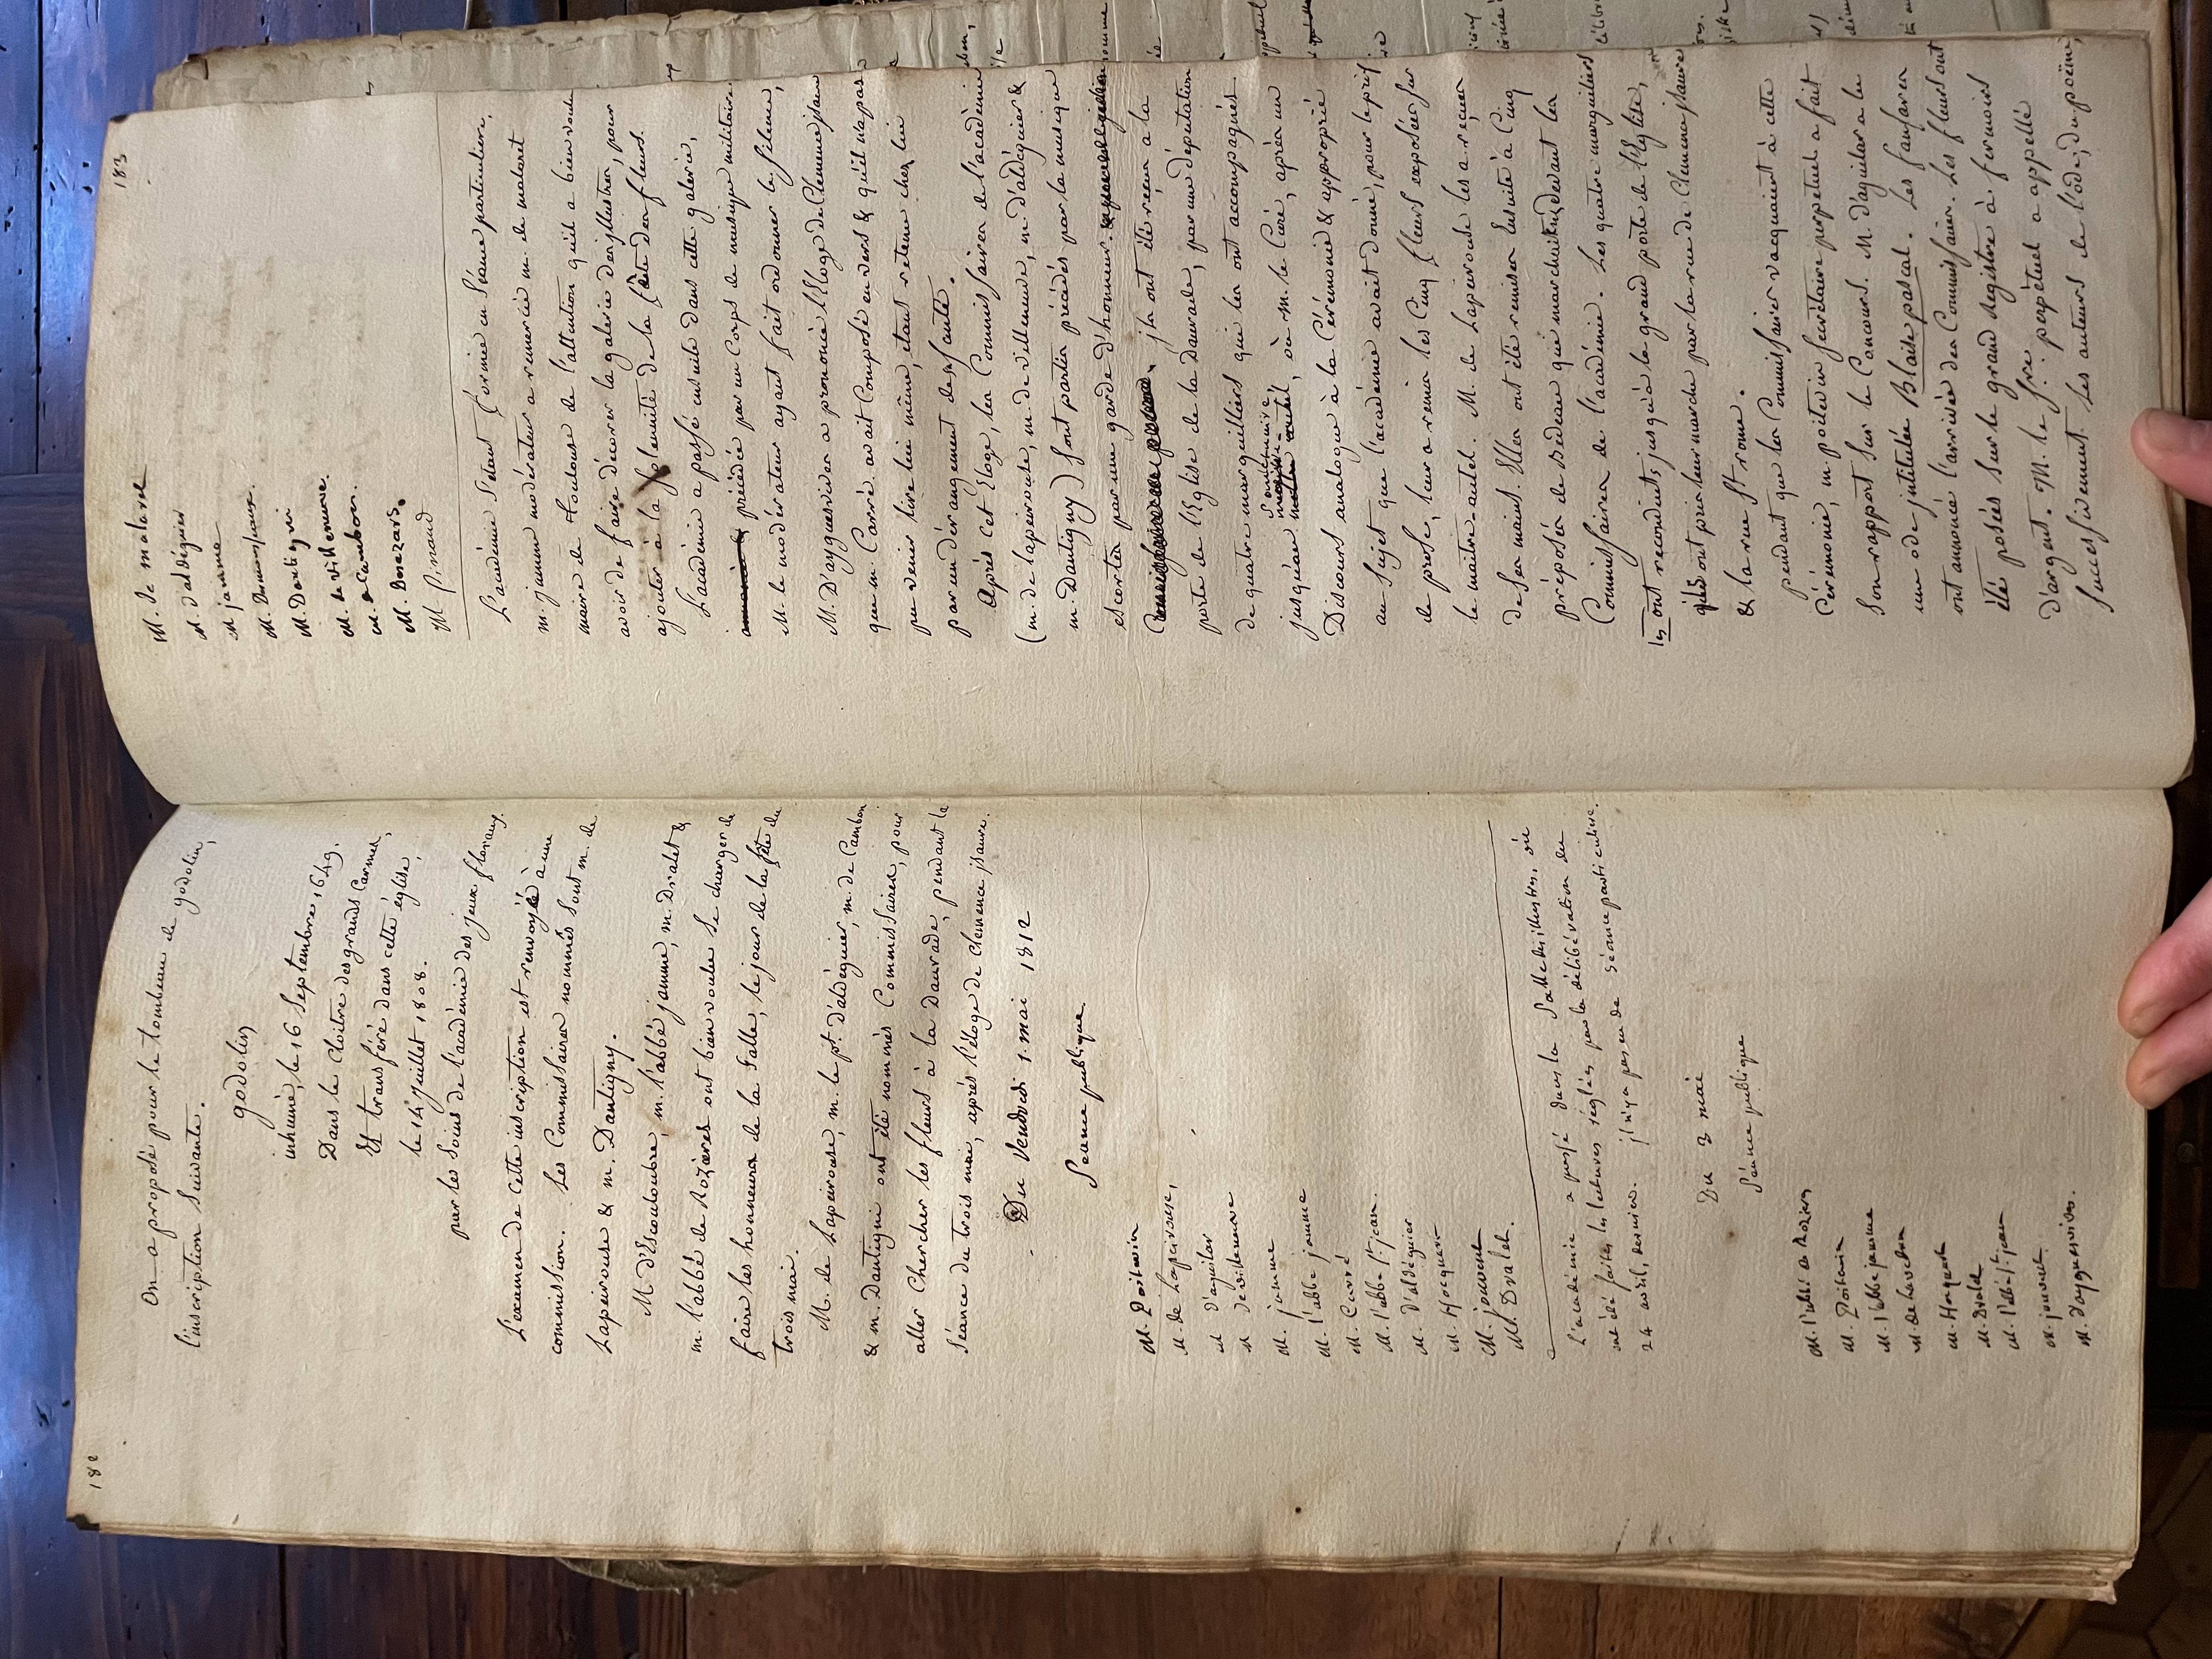 182
On a proposé pour le tombeau de godolin,
l'inscription Suivante.
godolin
inhumé, le 16 Septembre, 1649.
Dans le Cloitre des grands Carmes,
Et transféré dans cette église,
le 14 Juillet 1808.
par les Soins de l'académie des jeux floraux.
L'examen de cette inscription est renvoyé à une
commission. Les Commissaires nommés Sont m. de
Lapeirouse & m. Dantigny.
M. d'Escouloubre, m. l'abbé jamme, m. Dralet &
m. l'abbé de Rozieres ont bien voulu Se charger de
faire les honneurs de la Salle, le jour de la fête du
trois mai.
M. de Lapeirouse, m. le pt. Daldeguier, m. de Cambon
& m. Dantigni ont été nommés Commissaires, pour
aller Chercher les fleurs à la Daurade, pendant la
Séance du trois mai, après l'éloge de Clemence jsaure.
Du Vendredi 1. mai 1812
Séance publique
M. Poitevin
M. de Lapeirouse,
M d'aguilar
M de villeneuve
M. jamme
M. l'abbé jamme
M. Carré
M. l'abbé St. jean.
M. d'aldéguier
M. Hocquart
M. jouvent
M. Dralet.
L'académie a passé dans la Salle des illustres. où
ont été faites les lectures réglées par la délibération du
24 avril, dernier. jl n'y a pas eu de Séance particulière.
Du 3 mai
Séance publique
M. l'abbé de Rozieres
M. Poitevin
M. l'abbé jamme
M. Hocquart
M. Dralet
M. l'abbé St jean
M. jouvent.
M. d'ayguesvives.
183
M. de malaret
M. d'aldéguier
M jamme
M. Dantigni
M. de villeneuve.
M. de Cambon.
M. Pinaud
L'académie S'étant formée en Séance particuliere,
m. jamme modérateur a remercié m. de malaret
maire de Toulouse de l'attention qu'il a bien voulu
avoir de faire décorer la galerie des jllustres, pour
ajouter à la Solemnité de la fête des fleurs.
L'académie a passé ensuite dans cette galerie,
précédée par un Corps de musique militaire
M. le modérateur ayant fait ordonner le Silence,
M. D'ayguesvives a prononcé l'Eloge de Clemence jsaure
que m. Carré. avait Composé en vers & qu'il n'a pas
pu venir lire lui même, étant retenu chez lui
par un dérangement de Santé.
Après Cet Eloge, les Commissaires de l'académie
(m. de lapeirouse, m. de villeneuve, m. d'aldéguier &
m. Dantigny) Sont partis précédés par la musique
escortés par une garde d'honneur. jls ont été reçus a la
porte de l'Eglise de la Daurade, par une députation
de quatre marguilliers qui les ont accompagnés
jusqu'au Sanctuaire, où M. le Curé, après un
Discours analogue à la Cérémonie & approprié
au Sujet que l'académie avait donné, pour le prix
de prose, leur a remis les Cinq fleurs exposées sur
le maitre-autel. M. de Lapeirouse les a reçues
de Ses mains. Elles ont été remises Ensuite à Cinq
préposés de Bedeau qui marchaient devant les
Commissaires de l'académie. Les quatre marguilliers
les ont reconduits, jusqu'à la grand porte de l'Eglise,
ont pris leur marche par la rue de Clemence jsaure
& la rue St rome.
pendant que les Commissaires vacquaient à cette
Cérémonie, m. poitevin Secrétaire perpétuel a fait
Son rapport Sur le Concours. M. d'aguilar a lu
une ode jntitulée Blaise pascal. Les fanfares
ont annoncé l'arrivée des Commissaires. Les fleurs ont
été posées Sur le grand registre à fermoirs
d'argent. M. le Sre. perpétuel a appellé
Successivement les auteurs de l'ode, du poëme,